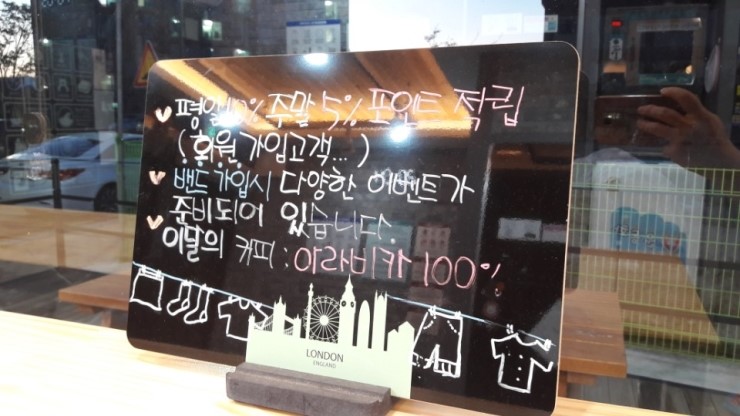 평일 % 주말 5% 포인트 적립
(회원 가입고객...)
밴드 가입시 다양한 이벤트가
준비되어 있습니다.
이달의 커피 : 아라비카 100%
LONDON
ENGLAND